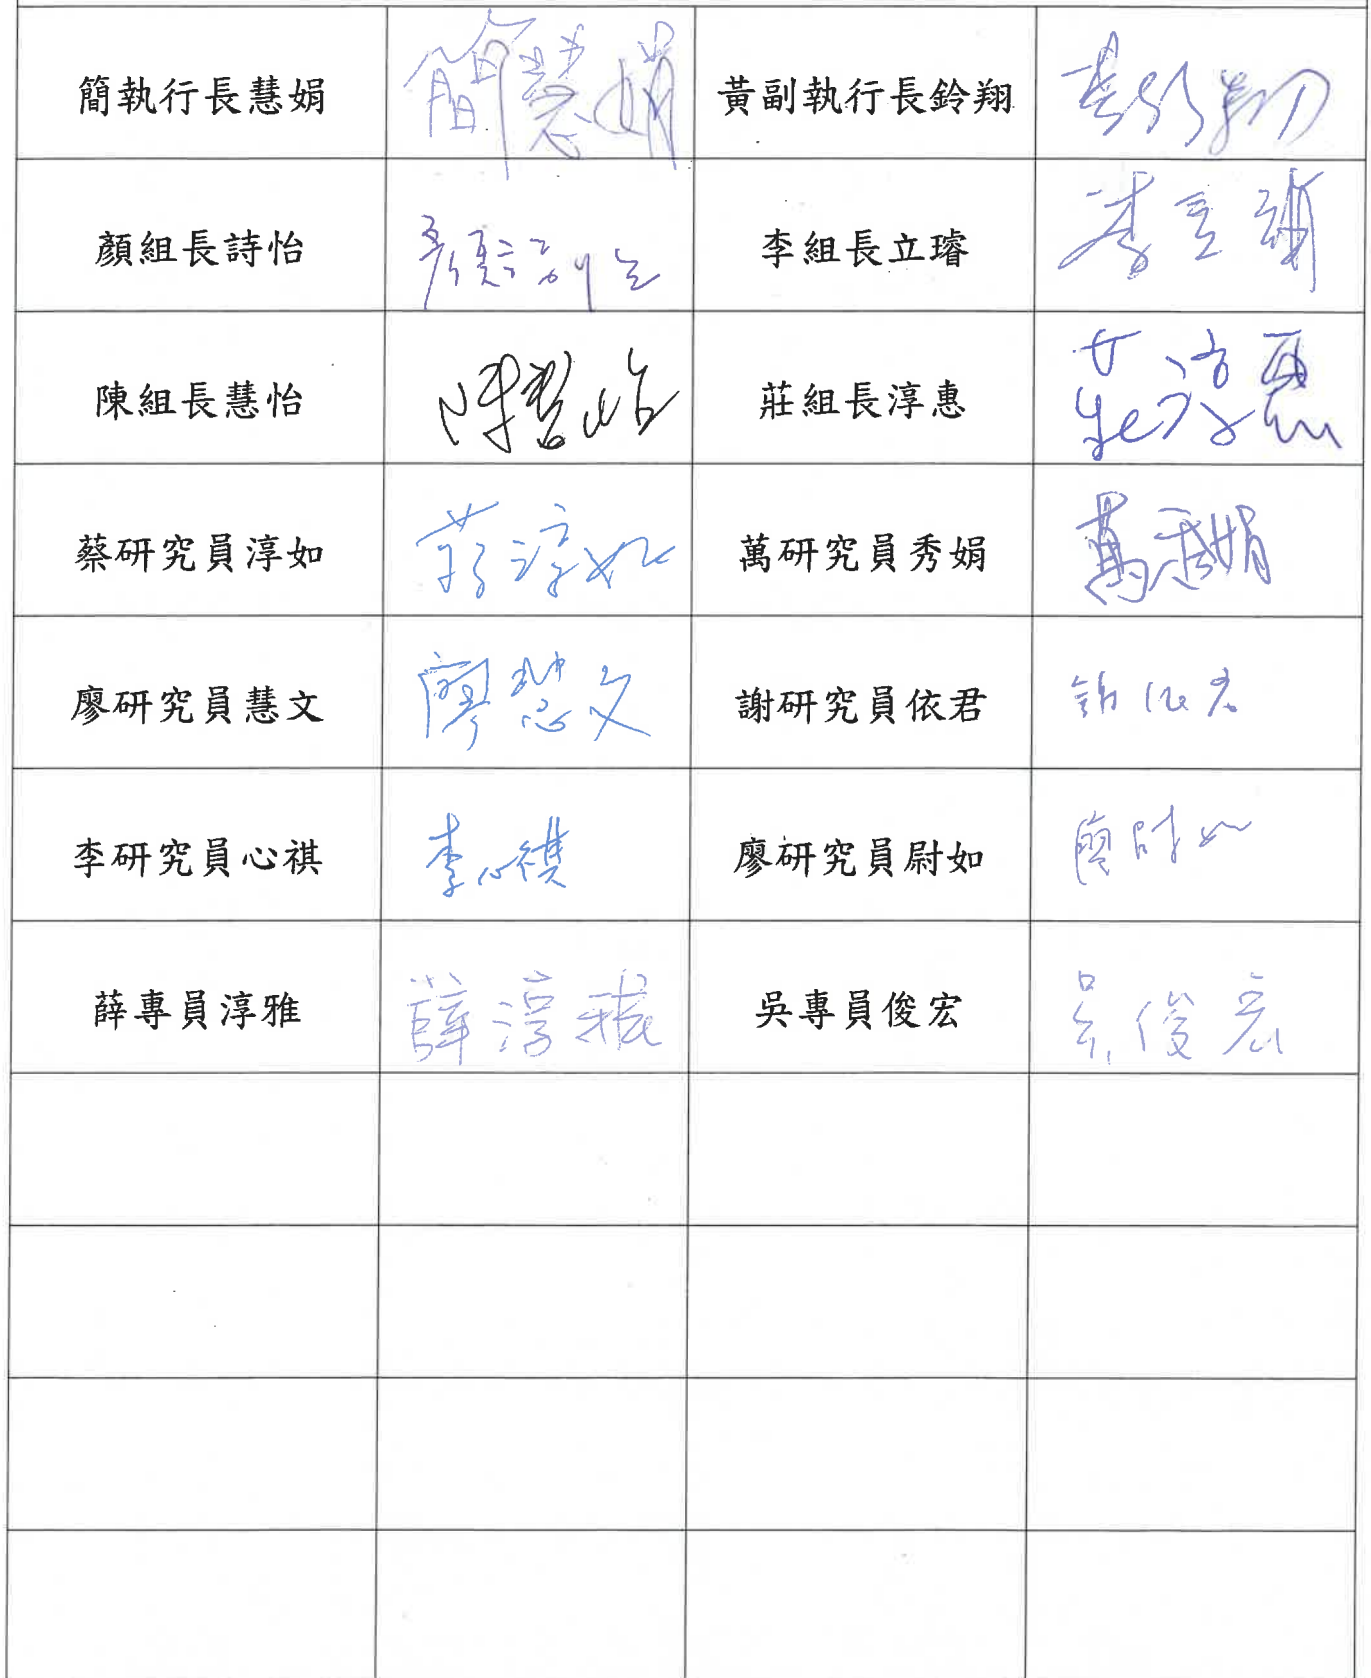 簡執行長慧娟 簡慧娟 黃副執行長鈴翔 黃鈴翔
顏組長詩怡 顏詩怡 李組長立璿 李立璿
陳組長慧怡 陳慧怡 莊組長淳惠 莊淳惠
蔡研究員淳如 蔡淳如 萬研究員秀娟 萬秀娟
廖研究員慧文 廖慧文 謝研究員依君 謝依君
李研究員心祺 李心祺 廖研究員尉如 廖尉如
薛專員淳雅 薛淳雅 吳專員俊宏 吳俊宏